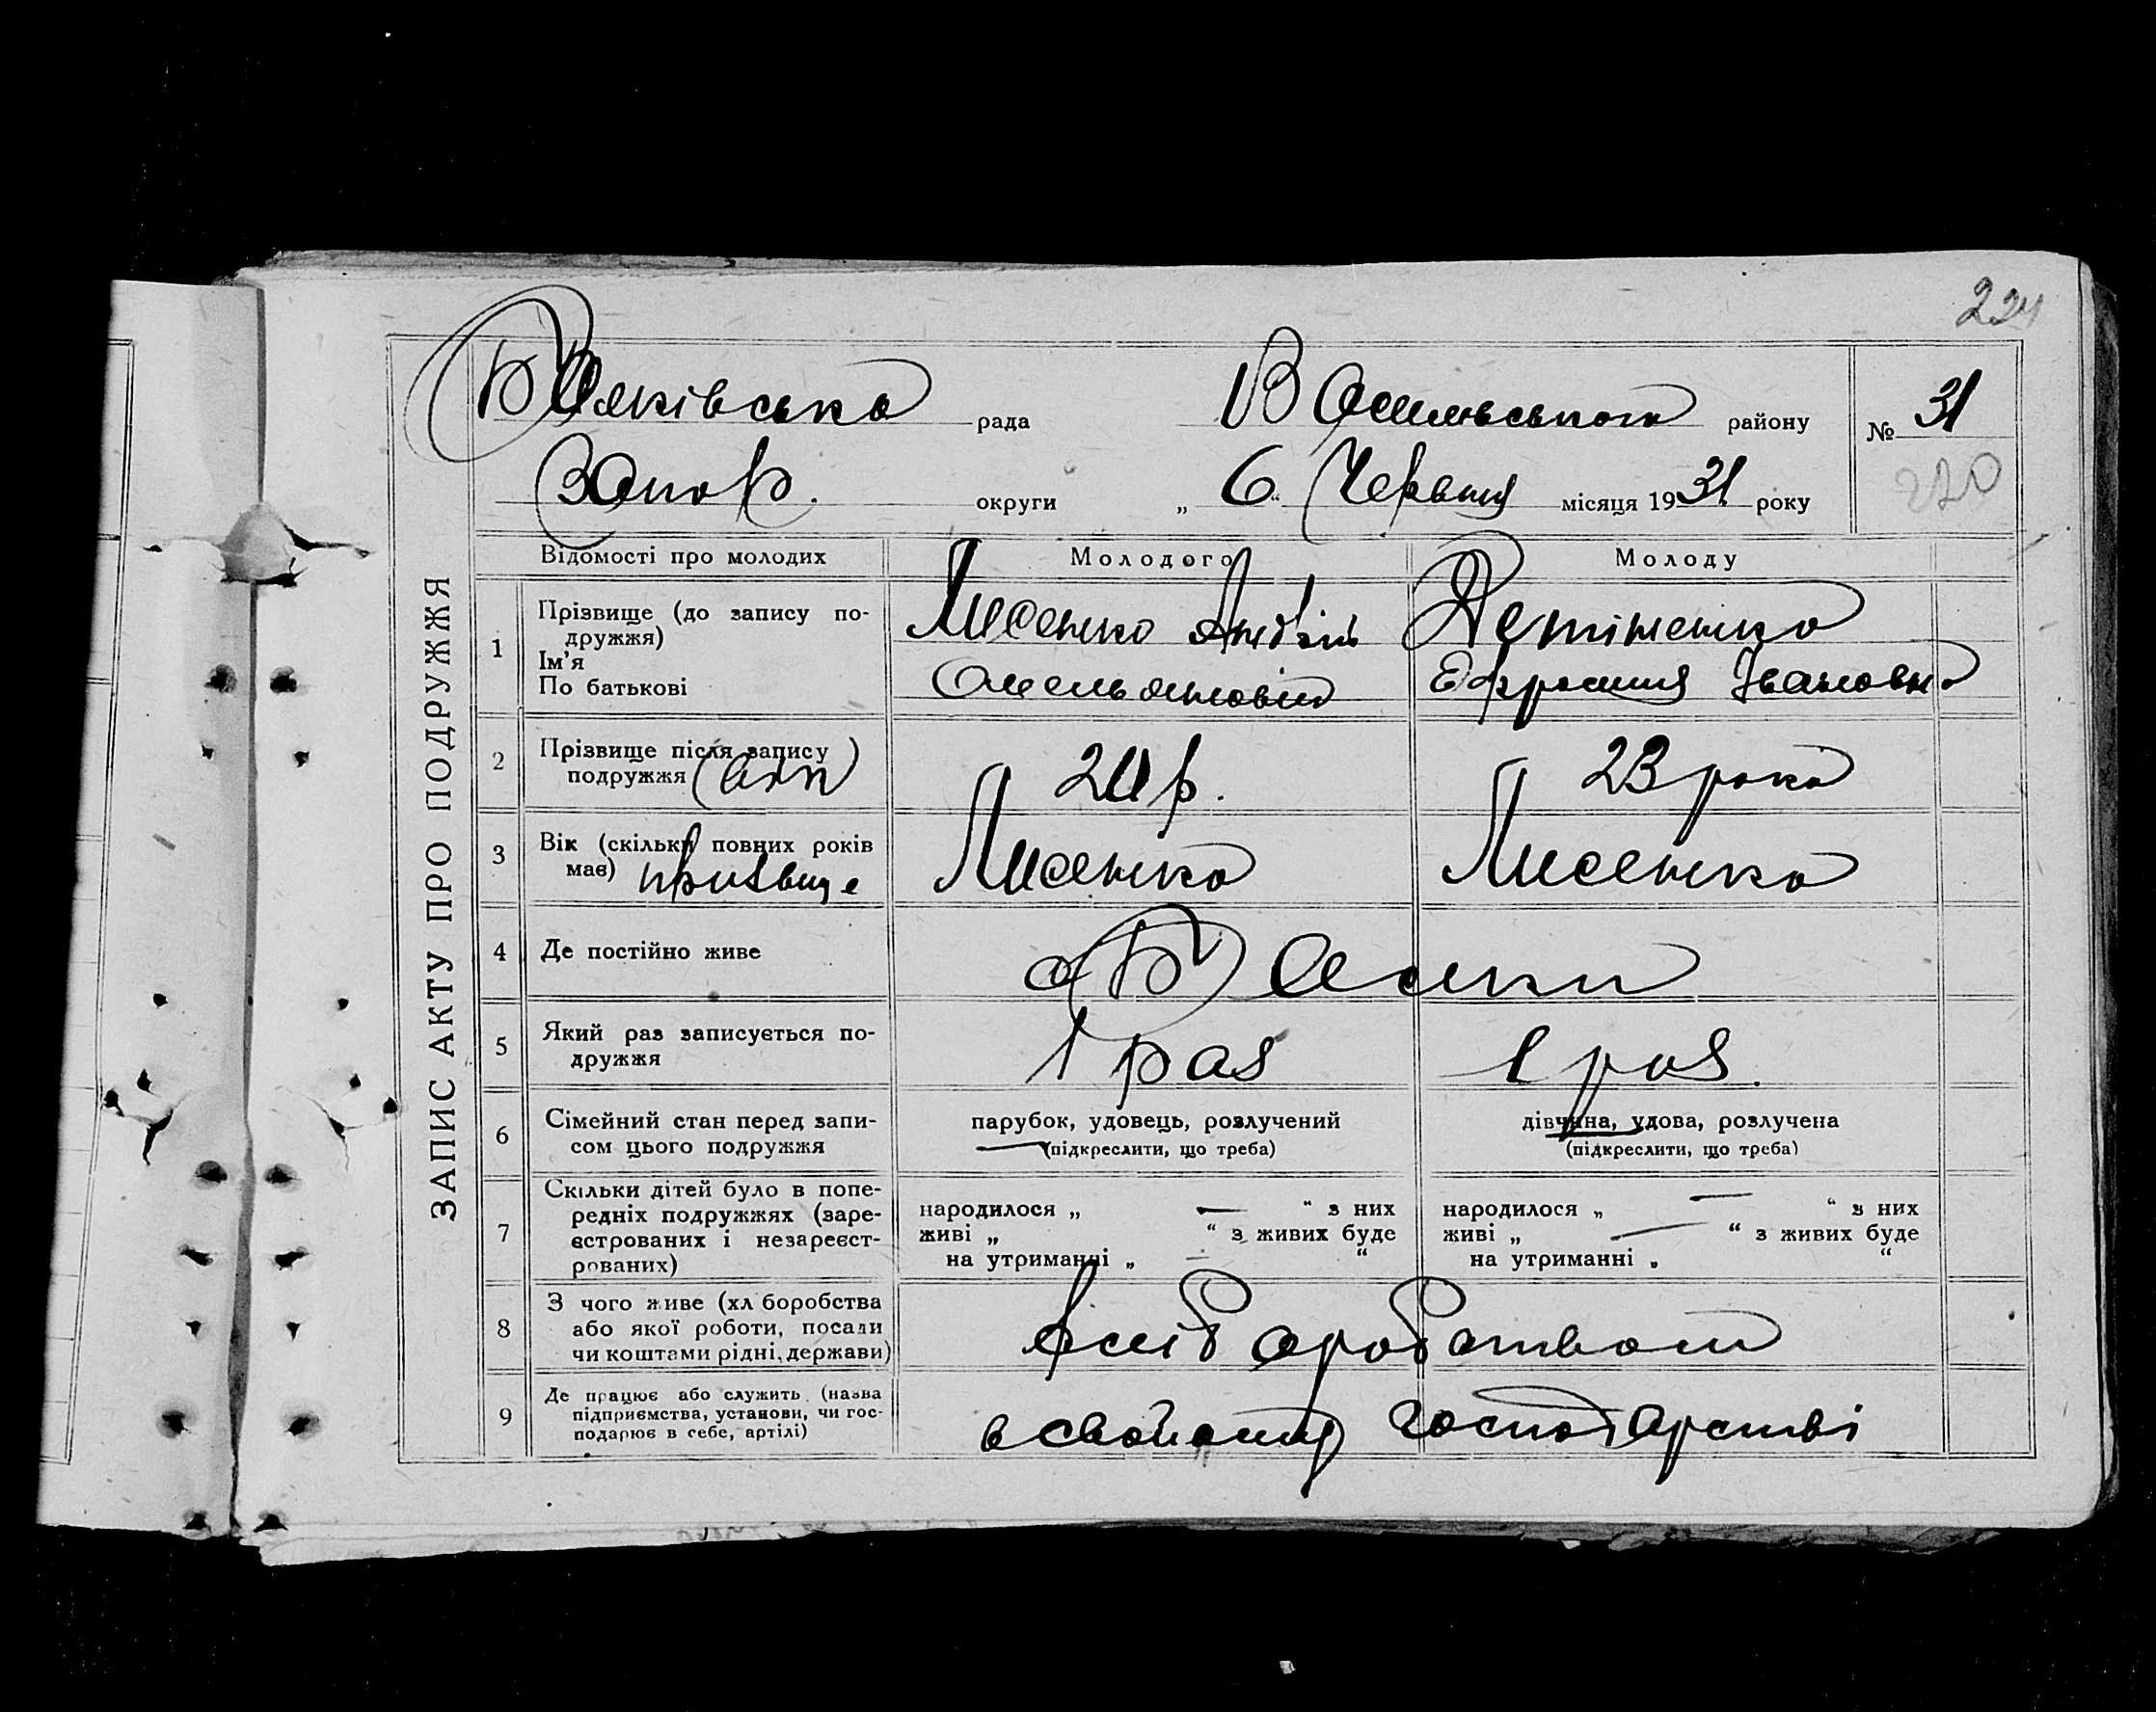 224
ЗАПИС АКТУ ПРО ПОДРУЖЖЯ
рада
Василівського району
№ 31
220
Запор. округи
„ 6 “ Червня місяця 1931 року
Відомості про молодих
Молодого
Молоду
1
Прізвище (до запису по-
дружжя)
Ім’я
По батькові
Лисенко Андрій
Омельянович
Ефросинія Івановна
2
Прізвище після запису
подружжя
23 рока
3
Вік (скільки повних років
має) призвище
Лисенко
Лисенко
4
Де постійно живе
5
Який раз записується по-
дружжя
1 раз
1 раз
6
Сімейний стан перед запи-
сом цього подружжя
парубок, удовець, розлучений
(підкреслити, що треба)
дівчина, удова, розлучена
(підкреслити, що треба)
7
Скільки дітей було в попе-
редніх подружжях (заре-
єстрованих і незареєст-
рованих)
народилося „ — “ з них
живі „ “ з живих буде
на утриманні „ “
народилося „ — “ з них
живі „ — “ з живих буде
на утриманні „ “
8
З чого живе (хліборобства
або якої роботи, посади
чи коштами рідні, держави)
хліборобством
9
Де працює або служить (назва
підприємства, установи, чи гос-
подарює в себе, артілі)
в свойому господарстві